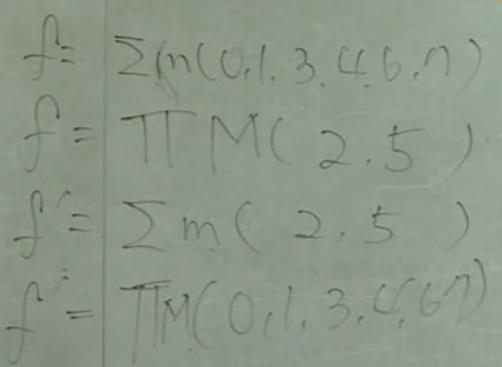 f = Σm(0,1,3,4,6,7)
f = ΠM(2,5)
f' = Σm(2,5)
f' = ΠM(0,1,3,4,6,7)